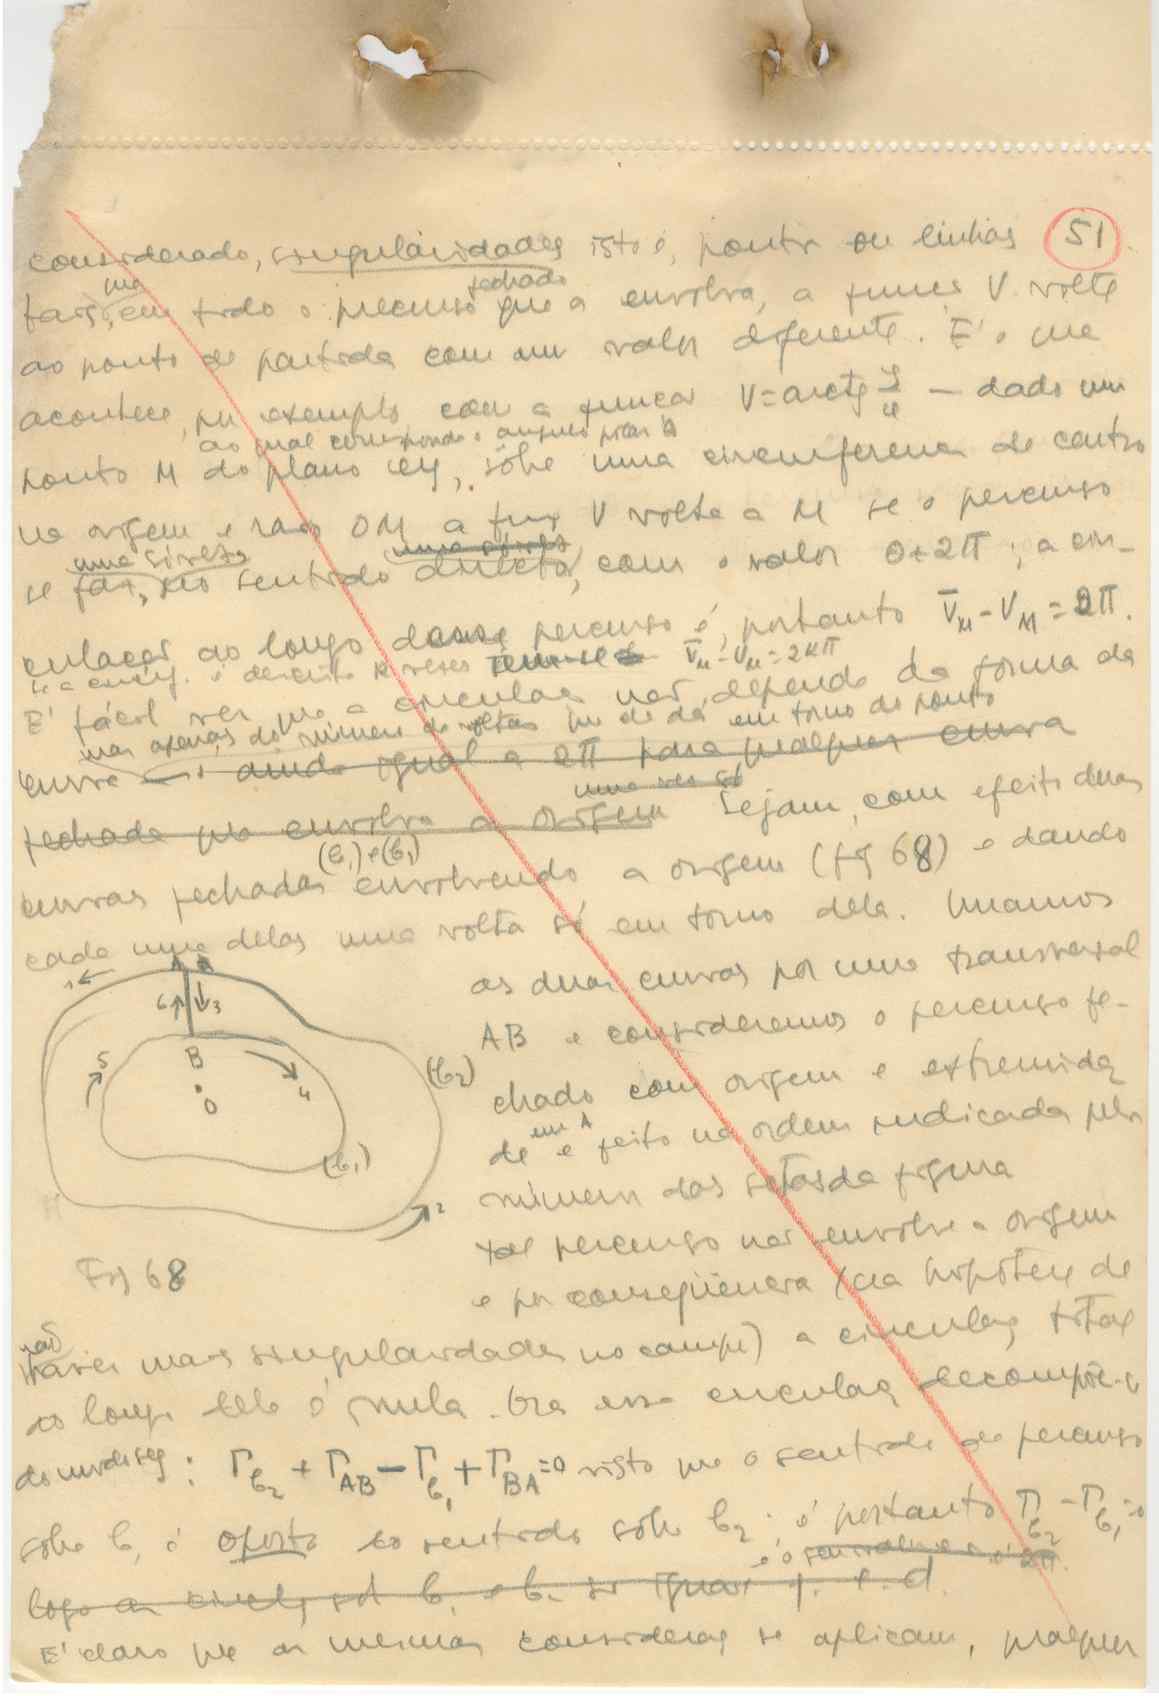 51
considerado, singularidades isto é, pontos ou linhas
tais, que em todo o percurso fechado que a envolva, a função V volte
ao ponto de partida com um valor diferente. E' o que
acontece, por exemplo com a função V = arctg y/x — dado um
ao qual corresponde o angulo polar θ
ponto M do plano xy, sôbre uma circunferencia de centro
na origem e raio OM a função V volta a M se o percurso
uma só vez uma só vez
se faz, no sentido directo, com o valor θ+2π ; a cir-
culação ao longo desse percurso é, portanto V̄_M - V_M = 2π.
se a circunf. é descrita k vezes V̄_M - V_M = 2kπ
E' fácil ver que a circulação não depende da forma da
mas apenas do número de voltas que se dá em torno do ponto
curva ainda igual a 2π para qualquer curva
uma vez só
fechada que envolva a origem Sejam, com efeito duas
(C₁) e (C₂)
curvas fechadas envolvendo a origem (fig 68) e dando
cada uma delas uma volta só em torno dela. Unamos
as duas curvas por uma transversal
AB e consideremos o percurso fe-
chado com origem e extremida
de em A e feito na ordem indicada pelos
números das setas da figura
Tal percurso não envolve a origem
e por consequencia (na hipótese de
não haver mais singularidades no campo) a circulação total
ao longo dele é nula. Ora essa circulação decompõe-se
do modo seg: Γ_C₂ + Γ_AB - Γ_C₁ + Γ_BA = 0 visto que o sentido de percurso
sôbre C₁ é oposto ao sentido sôbre C₂ ; é portanto Γ_C₂ - Γ_C₁ = 0
e o seu valor é 2π.
logo as circulações sob C₁ e C₂ são iguais q. e. d.
E' claro que as mesmas considerações se aplicam, qualquer
1
A
6
3
5
B
O
4
(C₂)
(C₁)
2
Fig 68